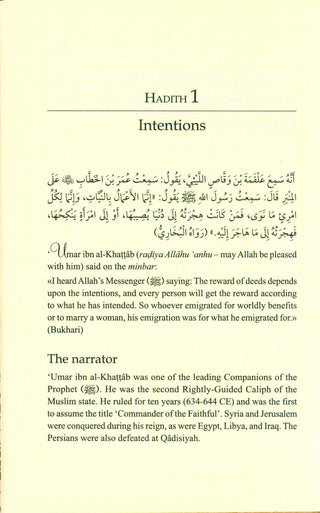 HADITH 1
Intentions
أَنَّهُ سَمِعَ عَلْقَمَةَ بْنَ وَقَّاصٍ اللَّيْثِيَّ، يَقُولُ: سَمِعْتُ عُمَرَ بْنَ الخَطَّابِ ﷺ عَلَى
المِنْبَرِ قَالَ: سَمِعْتُ رَسُولَ اللهِ ﷺ يَقُولُ: «إِنَّمَا الأَعْمَالُ بِالنِّيَّاتِ، وَإِنَّمَا لِكُلِّ
امْرِئٍ مَا نَوَى، فَمَنْ كَانَتْ هِجْرَتُهُ إِلَى دُنْيَا يُصِيبُهَا، أَوْ إِلَى امْرَأَةٍ يَنْكِحُهَا،
فَهِجْرَتُهُ إِلَى مَا هَاجَرَ إِلَيْهِ.» (رَوَاهُ البُخَارِيُّ)
‘Umar ibn al-Khaṭṭâb (raḍiya Allâhu ‘anhu – may Allah be pleased
with him) said on the minbar:
«I heard Allah’s Messenger (ﷺ) saying: The reward of deeds depends
upon the intentions, and every person will get the reward according
to what he has intended. So whoever emigrated for worldly benefits
or to marry a woman, his emigration was for what he emigrated for.»
(Bukhari)
The narrator
‘Umar ibn al-Khaṭṭâb was one of the leading Companions of the
Prophet (ﷺ). He was the second Rightly-Guided Caliph of the
Muslim state. He ruled for ten years (634-644 CE) and was the first
to assume the title ‘Commander of the Faithful’. Syria and Jerusalem
were conquered during his reign, as were Egypt, Libya, and Iraq. The
Persians were also defeated at Qâdisiyah.